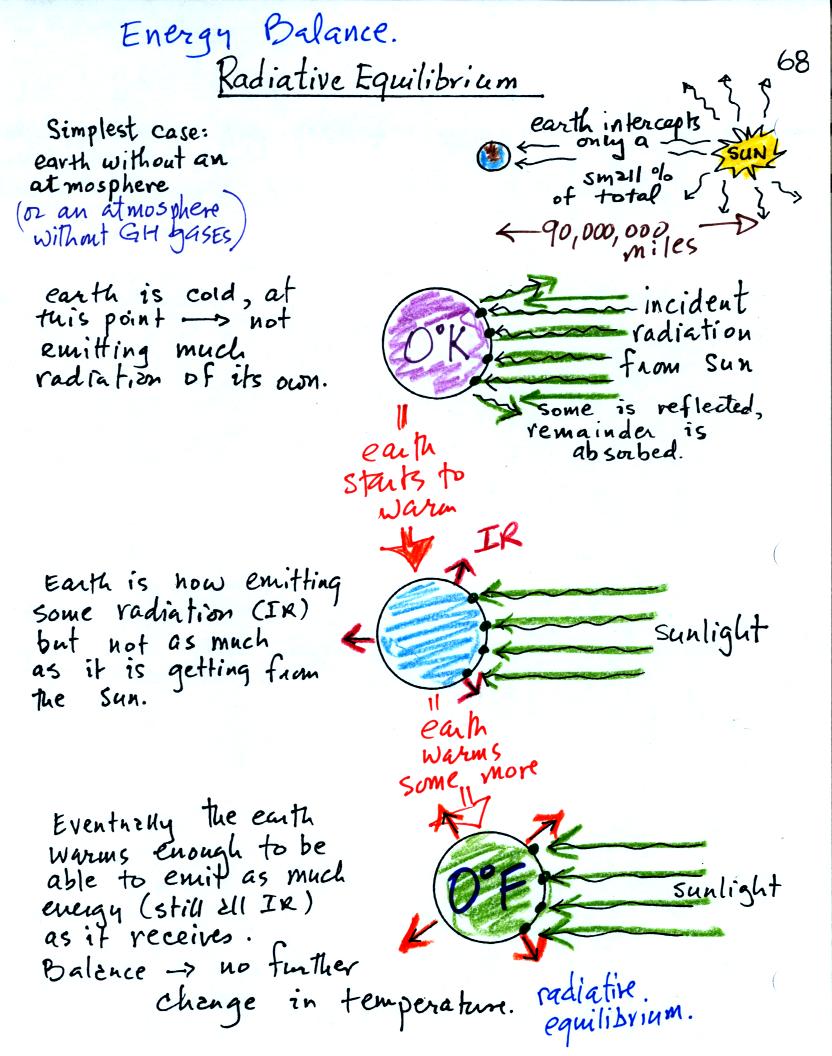 Energy Balance.
68
Radiative Equilibrium
Simplest case:
earth without an
atmosphere
(or an atmosphere
without GH gases)
earth intercepts
only a
small %
of total
SUN
90,000,000
miles
earth is cold, at
this point → not
emitting much
radiation of its own.
0°K
incident
radiation
from Sun
some is reflected,
remainder is
absorbed.
earth
starts to
warm
IR
Earth is now emitting
some radiation (IR)
but not as much
as it is getting from
the Sun.
sunlight
earth
warms
some more
Eventually the earth
warms enough to be
able to emit as much
energy (still all IR)
as it receives.
Balance → no further
change in temperature.
0°F
sunlight
radiative
equilibrium.